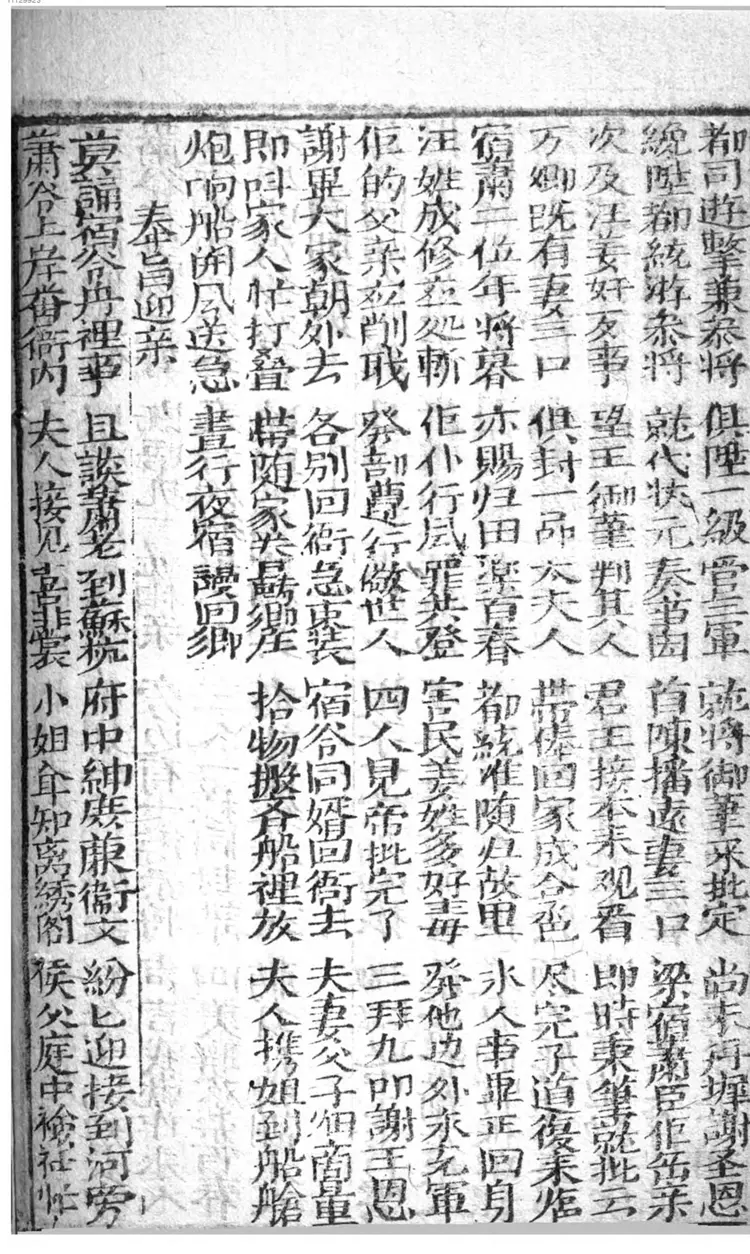 都司遊擊兼叅將 俱陞一級管三軍 就將御筆來批定 尚未丹墀謝圣恩
總陞都統游叅將 就代狀元奏 首陳播遠妻三口 梁宿肅臣佢岳亲
次及汪姜奸歹事 望王御筆判其人 君王接本来观看 即時秉筆就批云
万卿既有妻三口 俱封一品太夫人 帶俸回家成合卺 尽完子道復来临
宿肅二位年將暮 亦賜归田樂百春 都統准随归故里 氷人事畢正回身
汪姓成修立処斬 佢仆行凨罪共登 害民姜姓多奸毒 發他边外永充軍
佢的父亲应削职 發部遵行儆世人 四人見帝批完了 三拜九叩謝王恩
謝畢大家朝外去 各别回衙急束装 宿谷同婿回衙去 夫妻父子相商量
即呌家人忙打叠 帶随家眷轉鄉庄 拾物盤各船裡放 夫人携姐到船艙
炮响船開风送急 晝行夜宿謾回鄉
奉旨迎亲
莫誦宿谷舟裡事 且談肅老到蘇杭 府中紳庶兼衙文 紛匕迎接到河旁
肅谷上岸番衙内 夫人接见喜非常 小姐知离綉阁 侯父庭中襝衽忙